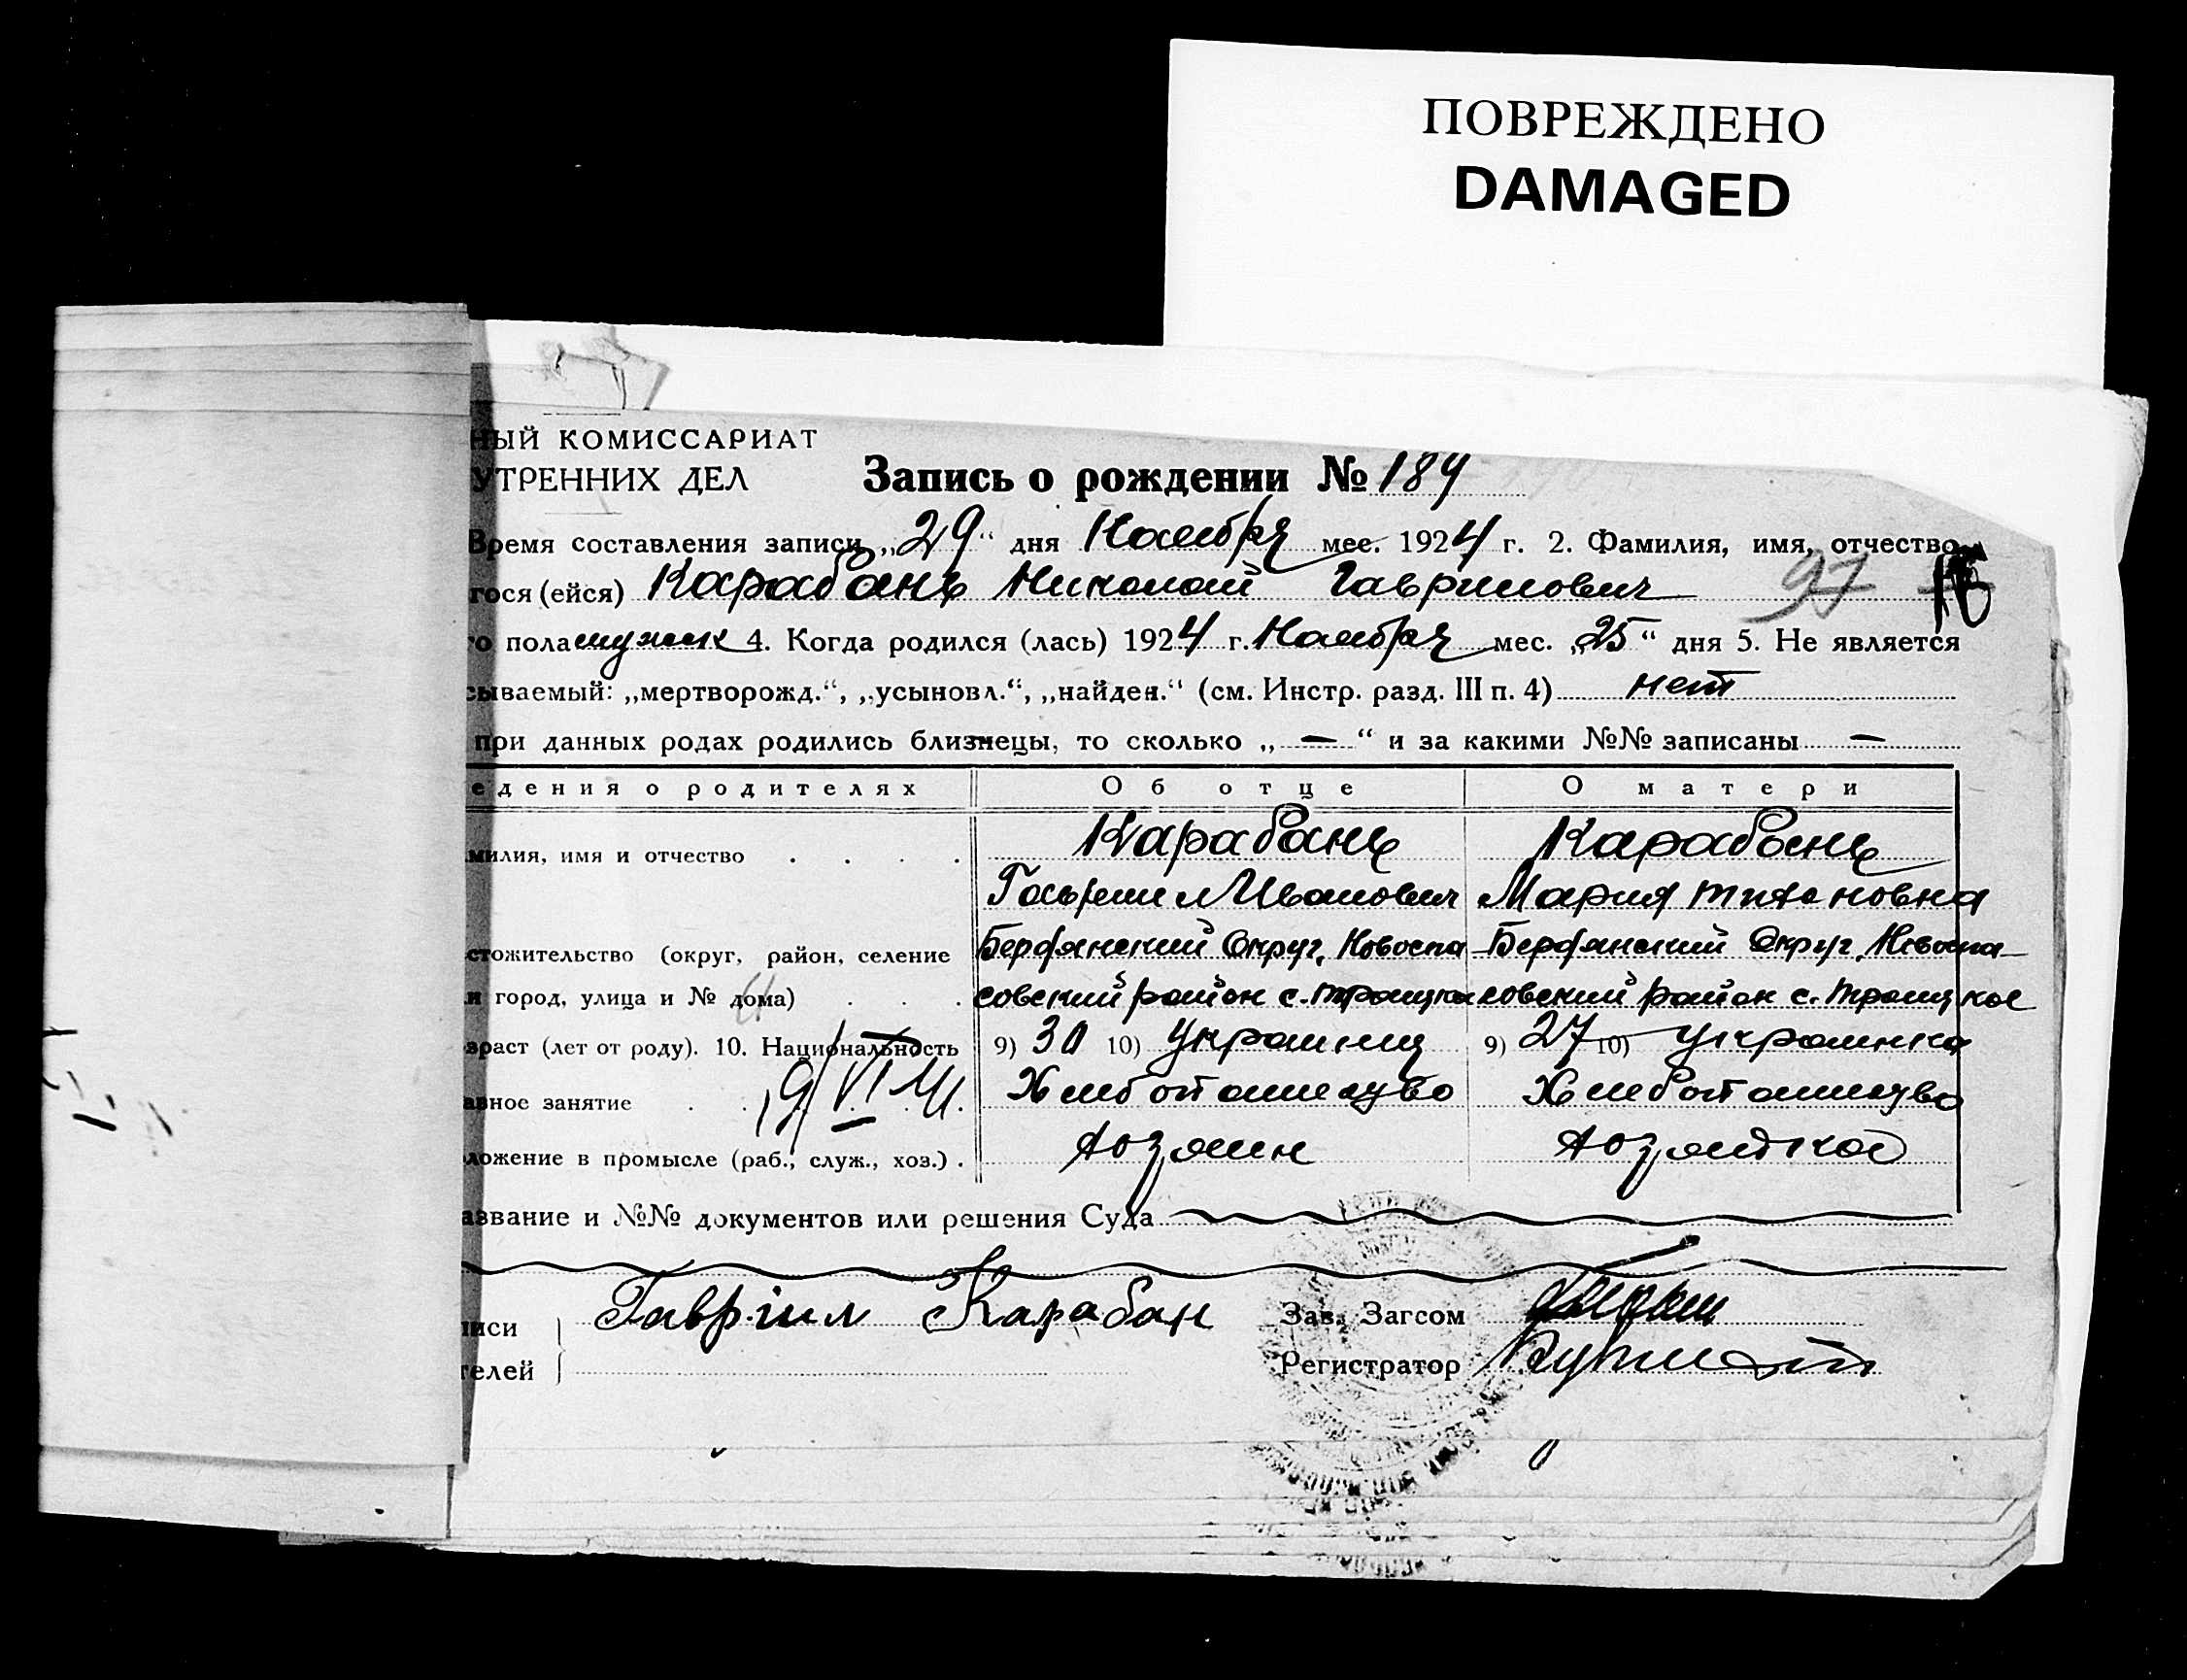 ПОВРЕЖДЕНО
DAMAGED
НЫЙ КОМИССАРИАТ
УТРЕННИХ ДЕЛ
Запись о рождении № 184
Время составления записи „29“ дня Ноября мес. 1924 г. 2. Фамилия, имя, отчество
гося (ейся) Карабань Николай Гаврилович 97
го пола мужск 4. Когда родился (лась) 1924 г. Ноября мес. „25“ дня 5. Не является
сываемый: „мертворожд.“, „усыновл.“, „найден.“ (см. Инстр. разд. III п. 4) нет
при данных родах родились близнецы, то сколько „—“ и за какими №№ записаны —
едения о родителях Об отце О матери
милия, имя и отчество . . . . Карабань Карабань
Гавриил Иванович Мария
стожительство (округ, район, селение Бердянский Округ, Новоспа Бердянский Округ, Новоспа-
и город, улица и № дома) . . . совский район с. Троицкое совский район с. Троицкое
зраст (лет от роду). 10. Национальность 9) 30 10) Украинец 9) 27 10) Украинка
авное занятие . . . . . Хлебопашество Хлебопашество
19/VI 41
ложение в промысле (раб., служ., хоз.) . хозяин хозяйка
азвание и №№ документов или решения Суда
писи Гавріил Карабан Зав. Загсом
телей Регистратор